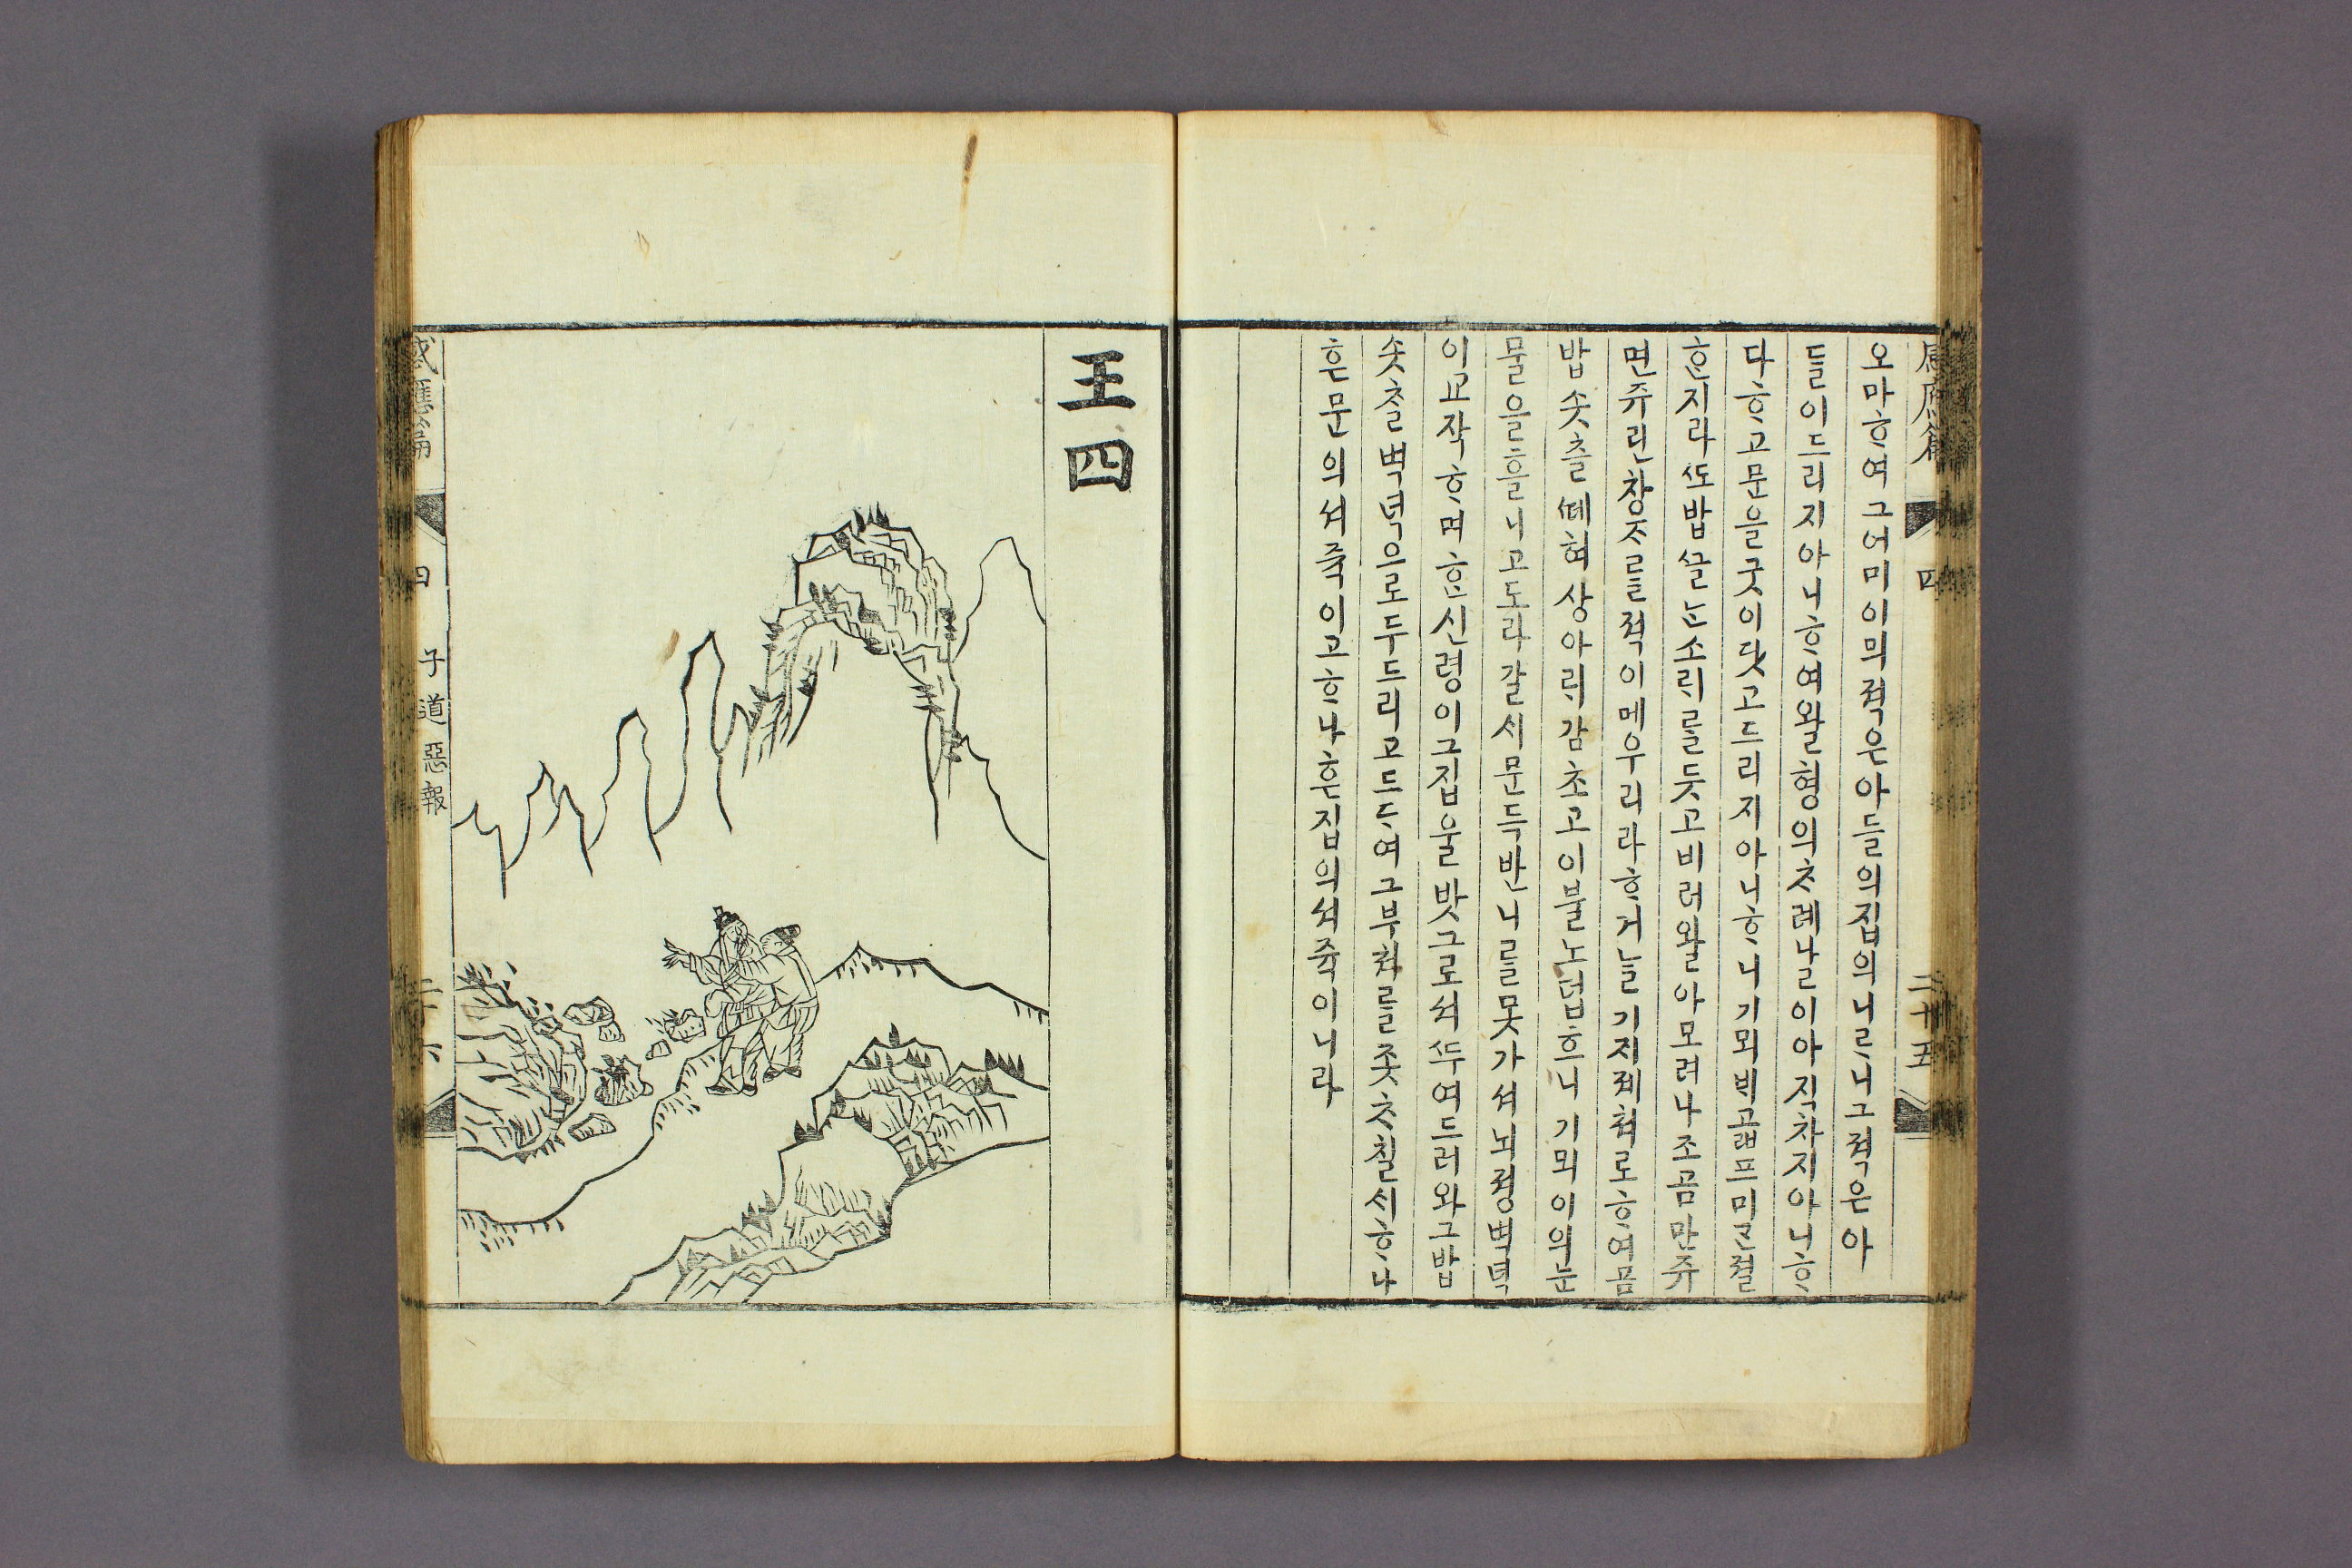 感應篇 四 二十五
오마ᄒᆞ여그어미이믜젹은아들의집의니ᄅᆞ니그젹은아
들이드리지아니ᄒᆞ여왈형의ᄎᆞ례날이아직ᄎᆞ지아니ᄒᆞ
다ᄒᆞ고문을굿이닷고드리지아니ᄒᆞ니기뫼ᄇᆡ곫프미ᄀᆞᆫ졀
ᄒᆞᆫ지라ᄯᅩ밥ᄉᆞᆱᄂᆞᆫ소ᄅᆡ를듯고비러왈아모려나조곰만쥬
면쥬린창ᄌᆞ를젹이메우리라ᄒᆞ거ᄂᆞᆯ기지졔쳐로ᄒᆞ여곰
밥솟츨ᄯᅦ혀상아ᄅᆡ감초고이블노덥흐니기뫼이의눈
물을흘니고도라갈ᄉᆡ문득반니를못가셔뇌졍벽녁
이ᄭᅩ작ᄒᆞ며ᄒᆞᆫ신령이그집울밧그로셔ᄯᅱ여드러와그밥
솟츨벽녁으로두드리고드ᄃᆞ여그부쳐를좃ᄎᆞ칠ᄉᆡᄒᆞ나
흔문의셔쥭이고ᄒᆞ나흔집의셔쥭이니라
王四
感應篇 四 子道惡報 二十六